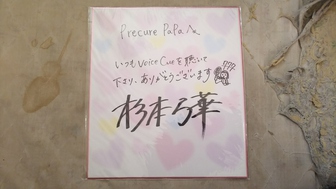 Precure Papa へ
いつも Voice Cueを聴いて
下さり、ありがとうございます